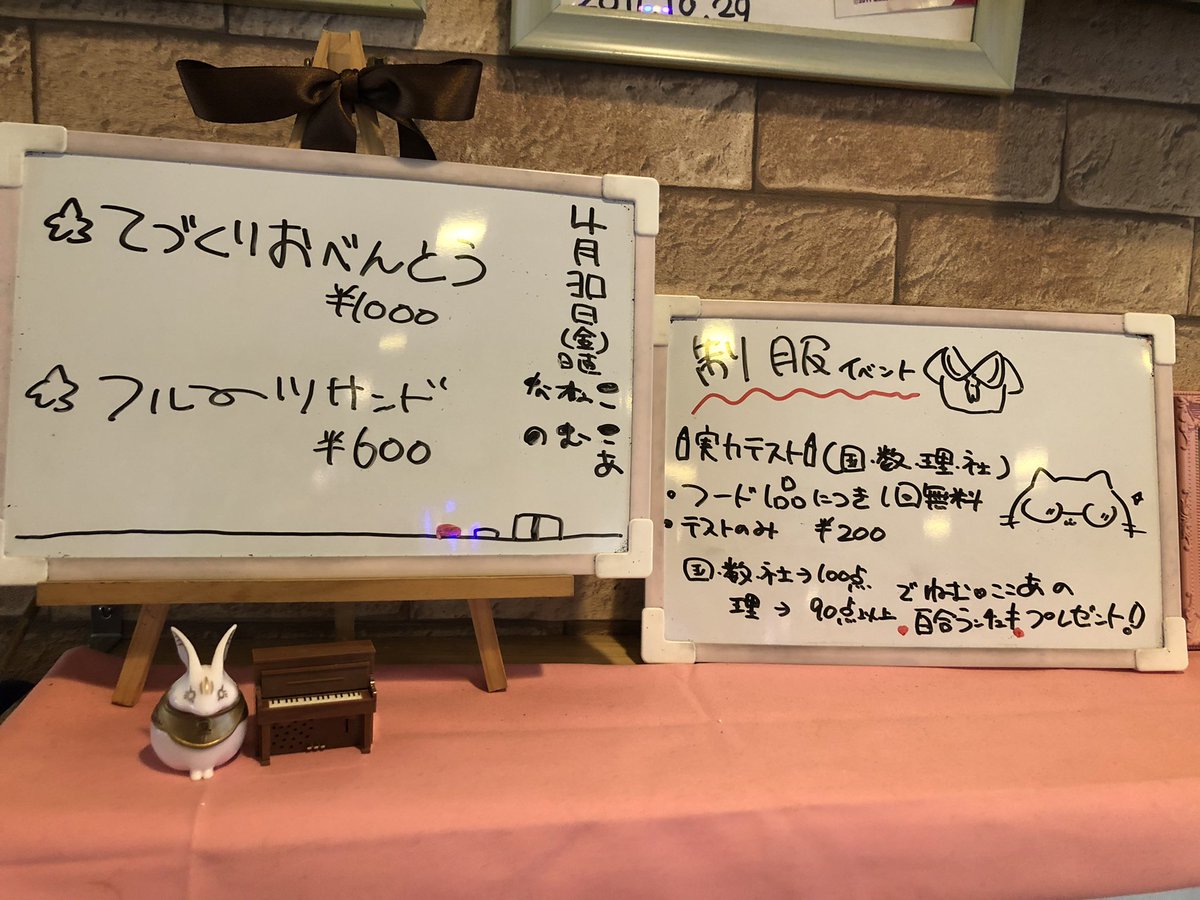 2017.10.29
てづくりおべんとう
¥1000
フルーツサンド
¥600
4月30日(金)
日直
ここあ
ねむ
制服イベント
実力テスト(国.数.理.社)
・フード1品につき1回無料
・テストのみ ¥200
国.数.社→100点
理→90点以上
でねむ・ここあの
百合ランチェキプレゼント!